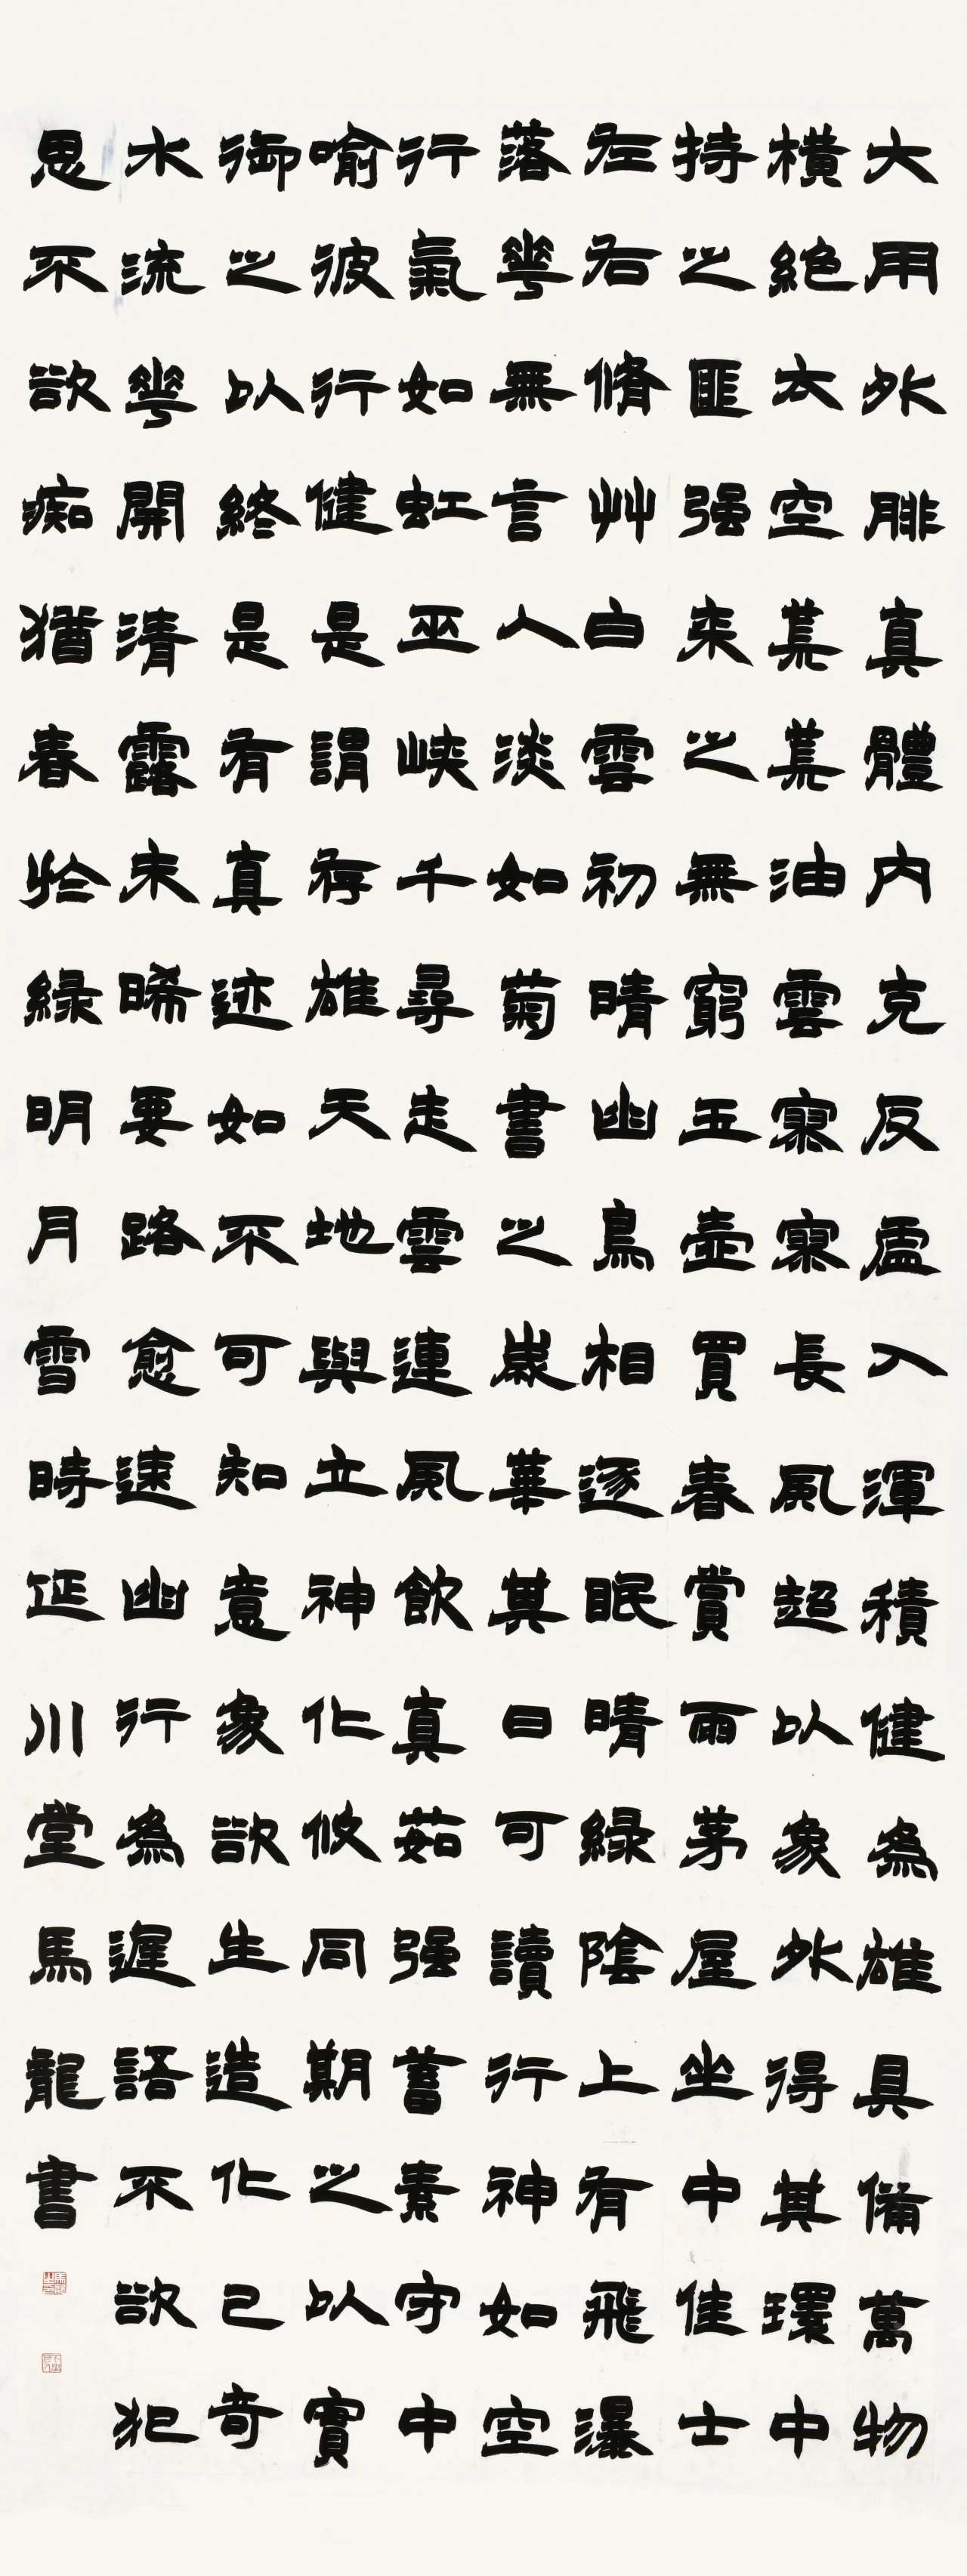 大用外腓真體内充反虛入渾積健為雄具備萬物
橫絕太空荒荒油雲寥寥長風超以象外得其環中
持之匪强來之無窮玉壺買春賞雨茅屋坐中佳士
左右脩竹白雲初晴幽鳥相逐眠晴綠陰上有飛瀑
落花無言人淡如菊書之歲華其曰可讀行神如空
行氣如虹巫峽千尋走雲連風飲真茹强蓄素守中
喻彼行健是謂存雄天地與立神化攸同期之以實
御之以終是有真迹如不可知意象欲生造化已奇
水流花開清露未晞要路愈速幽行為遲語不欲犯
思不欲痴猶春於綠明月雪時延川堂馬龍書